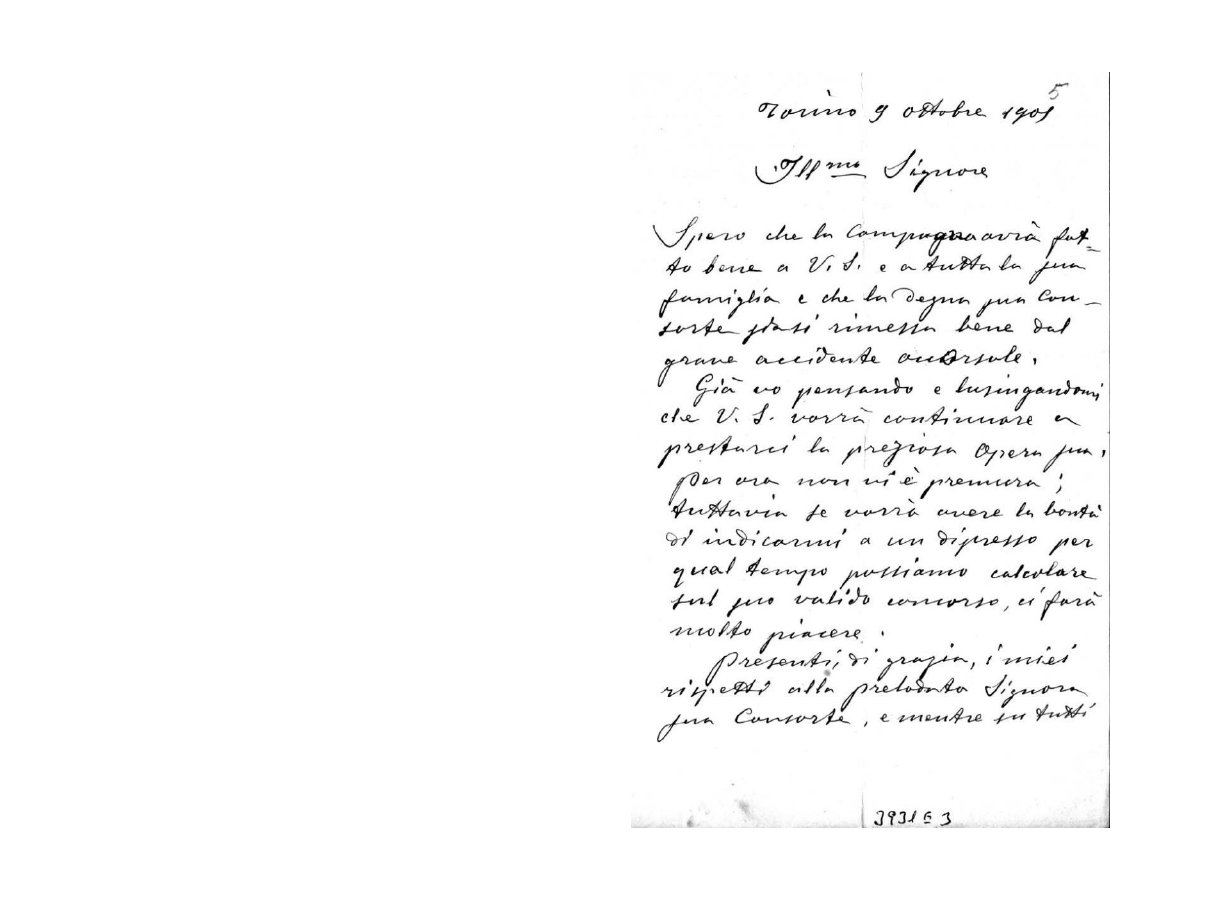 5
Torino 9 ottobre 1901
Ill.mo Signore
Spero che la Campagna avrà fat-
to bene a V. S. e a tutta la sua
famiglia e che la degna sua Con-
sorte siasi rimessa bene dal
grave accidente occorsole.
Già vo pensando e lusingandomi
che V. S. vorrà continuare a
prestarci la preziosa Opera sua.
Per ora non vi è premura;
tuttavia se vorrà avere la bontà
di indicarmi a un dipresso per
qual tempo possiamo calcolare
sul suo valido concorso, ci farà
molto piacere.
Presenti, di grazia, i miei
rispetti alla prelodata Signora
sua Consorte, e mentre su tutti
3931 E 3